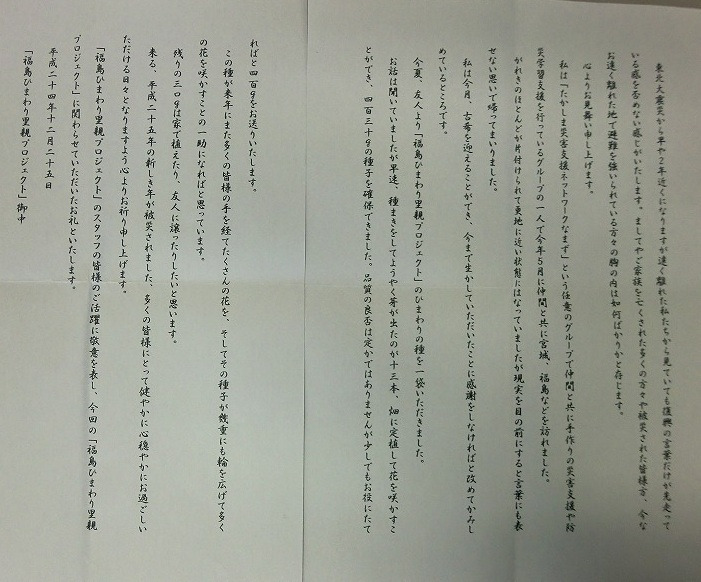 東北大震災から早や２年近くになりますが遠く離れた私たちから見ていても復興の言葉だけが先走って
いる感を否めない感じがいたします。ましてやご家族を亡くされた多くの方々や被災された皆様方、今な
お遠く離れた地で避難を強いられている方々の胸の内は如何ばかりかと存じます。
心よりお見舞い申し上げます。
私は「たかしま災害支援ネットワークなまず」という任意のグループで仲間と共に手作りの災害支援や防
災学習支援を行っているグループの一人で今年５月に仲間と共に宮城、福島などを訪れました。
がれきのほとんどが片付けられて更地に近い状態にはなっていましたが現実を目の前にすると言葉にも表
せない思いで帰ってまいりました。
私は今月、古希を迎えることができ、今まで生かしていただいたことに感謝をしなければと改めてかみし
めているところです。
今夏、友人より「福島ひまわり里親プロジェクト」のひまわりの種を一袋いただきました。
お話は聞いていましたが早速、種まきをしてようやく芽が出たのが十三本、畑に定植して花を咲かすこ
とができ、四百三十ｇの種子を確保できました。品質の良否は定かではありませんが少しでもお役にたて
ればと四百ｇをお送りいたします。
この種が来年にまた多くの皆様の手を経てたくさんの花を、そしてその種子が幾重にも輪を広げて多く
の花を咲かすことの一助になればと思っています。
残りの三〇ｇは家で植えたり、友人に譲ったりしたいと思います。
来る、平成二十五年の新しき年が被災されました、多くの皆様にとって健やかに心穏やかにお過ごしい
ただける日々となりますよう心よりお祈り申し上げます。
「福島ひまわり里親プロジェクト」のスタッフの皆様のご活躍に敬意を表し、今回の「福島ひまわり里親
プロジェクト」に関わらせていただいたお礼といたします。
平成二十四年十二月二十五日
「福島ひまわり里親プロジェクト」御中